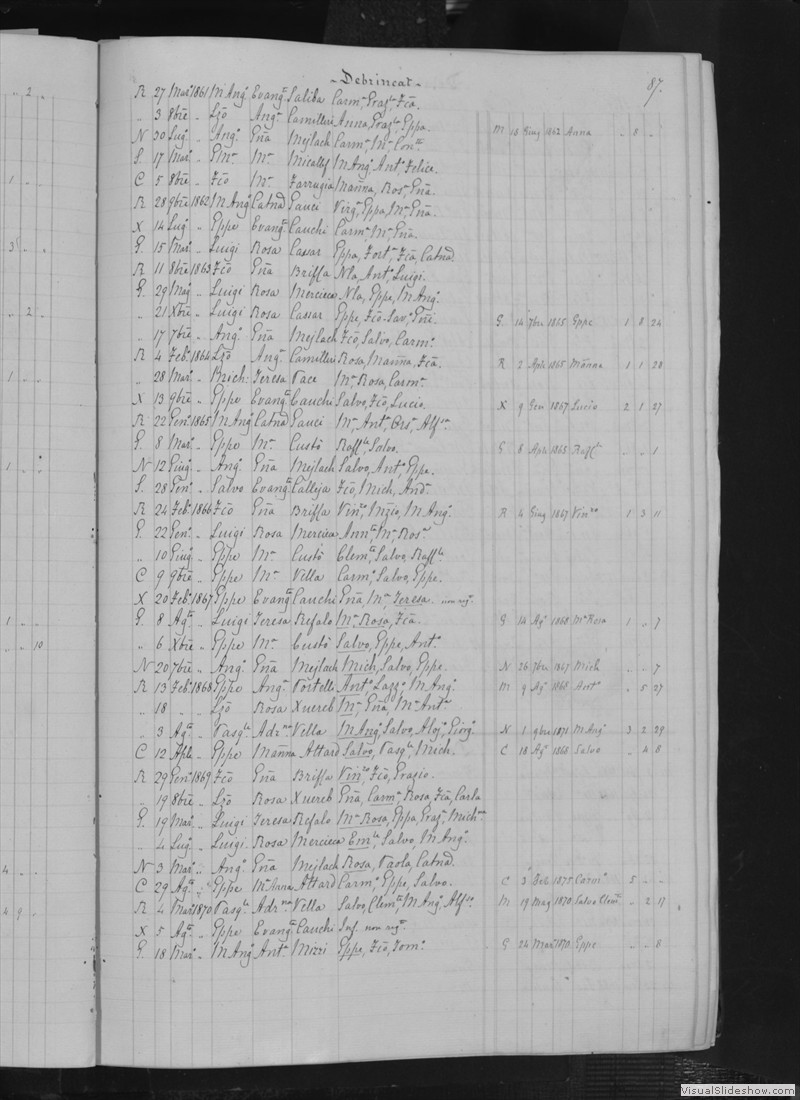 2
1
3
2
1
1
1
10
4
4 9
Debrincat
87.
R 27 Mar. 1861 M Ang. Evang. Saliba Carm. Graz. Fca.
" 3 8bre " Lzo Ang. Camilleri Anna, Graz. Eppa. M 10 Giug 1862 Anna " 8 "
N 30 Lug. " Ang. Gna Mejlach Carm. M. Con.
S 17 Mar. " Emm. M. Micallef M Ang. Ant. Felice.
C 5 8bre " Fco M. Farrugia Manna, Ros. Gna.
R 28 9bre 1862 M Ang. Catnd Gauci Virg. Eppa, M. Gna.
X 14 Lug. " Eppe Evang. Cauchi Carm. M. Gna.
G. 15 Mar. " Luigi Rosa Cassar Eppa, Fort. Fca, Catnd.
R 11 8bre 1863 Fco Gna Briffa Nla, Ant. Luigi.
G. 29 Mag " Luigi Rosa Mercieca Nla, Eppe, M Ang.
" 21 Xbre " Luigi Rosa Cassar Eppe, Fco-Sav. G. 14 7bre 1865 Eppe 1 8 24
" 17 7bre " Ang. Gna Mejlach Fco, Salvo, Carm.
R 4 Feb. 1864 Lzo Ang. Camilleri Rosa, Manna, Fca. R 2 Aple 1865 Manna 1 1 28
" 28 Mar. " Mich: Teresa Pace M. Rosa, Carm.
X 13 9bre " Eppe Evang. Cauchi Salvo, Fco, Lucio. X 9 Gen 1867 Lucio 2 1 27
R 22 Gen. 1865 M Ang. Catnd Gauci M. Ant. Ors. Alf.
G. 8 Mar. " Eppe M. Custò Raff. Salvo. G 8 Aple 1865 Raff. " " 1
N 12 Giug. " Ang. Gna Mejlach Salvo, Ant. Eppe.
S. 28 Gen. " Salvo Evang. Calleja Fco, Mich, And.
R 24 Feb. 1866 Fco Gna Briffa Vin. Nzio, M Ang. R 4 Giug 1867 Vin. 1 3 11
G. 22 Gen. " Luigi Rosa Mercieca Ann. M. Ros.
" 10 Giug. " Eppe M. Custò Clem. Salvo, Raff.
C 9 9bre " Eppe M. Vella Carm. Salvo, Eppe.
X 20 Feb. 1867 Eppe Evang. Cauchi Gna, M. Teresa. non reg.
G. 8 Ag. " Luigi Teresa Refalo M. Rosa, Fca. G 14 Ag 1868 M. Rosa 1 " 7
" 6 Xbre " Eppe M. Custò Salvo, Eppe, Ant.
N 20 7bre " Ang. Gna Mejlach Mich, Salvo, Eppe. N 26 7bre 1867 Mich " " 7
R 13 Feb. 1868 Eppe Ang. Portelli Ant. Lazz. M Ang. M 9 Ag 1868 Ant. " 5 27
" 18 " " Lzo Rosa Xuereb M. Gna, M. Ant.
" 3 Ag. " Pasq. Adr. Vella M Ang, Salvo, Aloj, Giorg. N 1 9bre 1871 M Ang. 3 2 29
C 12 Aple " Eppe Manna Attard Salvo, Pasq. Mich. C 18 Ag 1868 Salvo " 4 6
R 29 Gen. 1869 Fco Gna Briffa Vin. Fco, Grazio.
" 19 8bre " Lzo Rosa Xuereb Gna, Carm. Rosa, Fca, Carla
G. 19 Mar. " Luigi Teresa Refalo M. Rosa, Eppa, Graz. Mich.
" 4 Lug. " Luigi. Rosa Mercieca Em. Salvo, M Ang.
N 3 Mar. " Ang. Gna Mejlach Rosa, Paola, Catnd.
C 29 Ag. " Eppe M. Anna Attard Carm. Eppe, Salvo. C 3 Feb 1875 Carm. 5 " "
R 4 Mar 1870 Pasq. Adr. Vella Salvo, Clem. M Ang. Alf. M 19 Mag 1870 Salvo Clem. " 2 17
X 5 Ag. " Eppe Evang. Cauchi Inf. non reg.
G. 18 Mar. " M Ang. Ant. Mizzi Eppe, Fco, Tom. G 24 Mar 1870 Eppe " " 6
VisualSlideshow.com